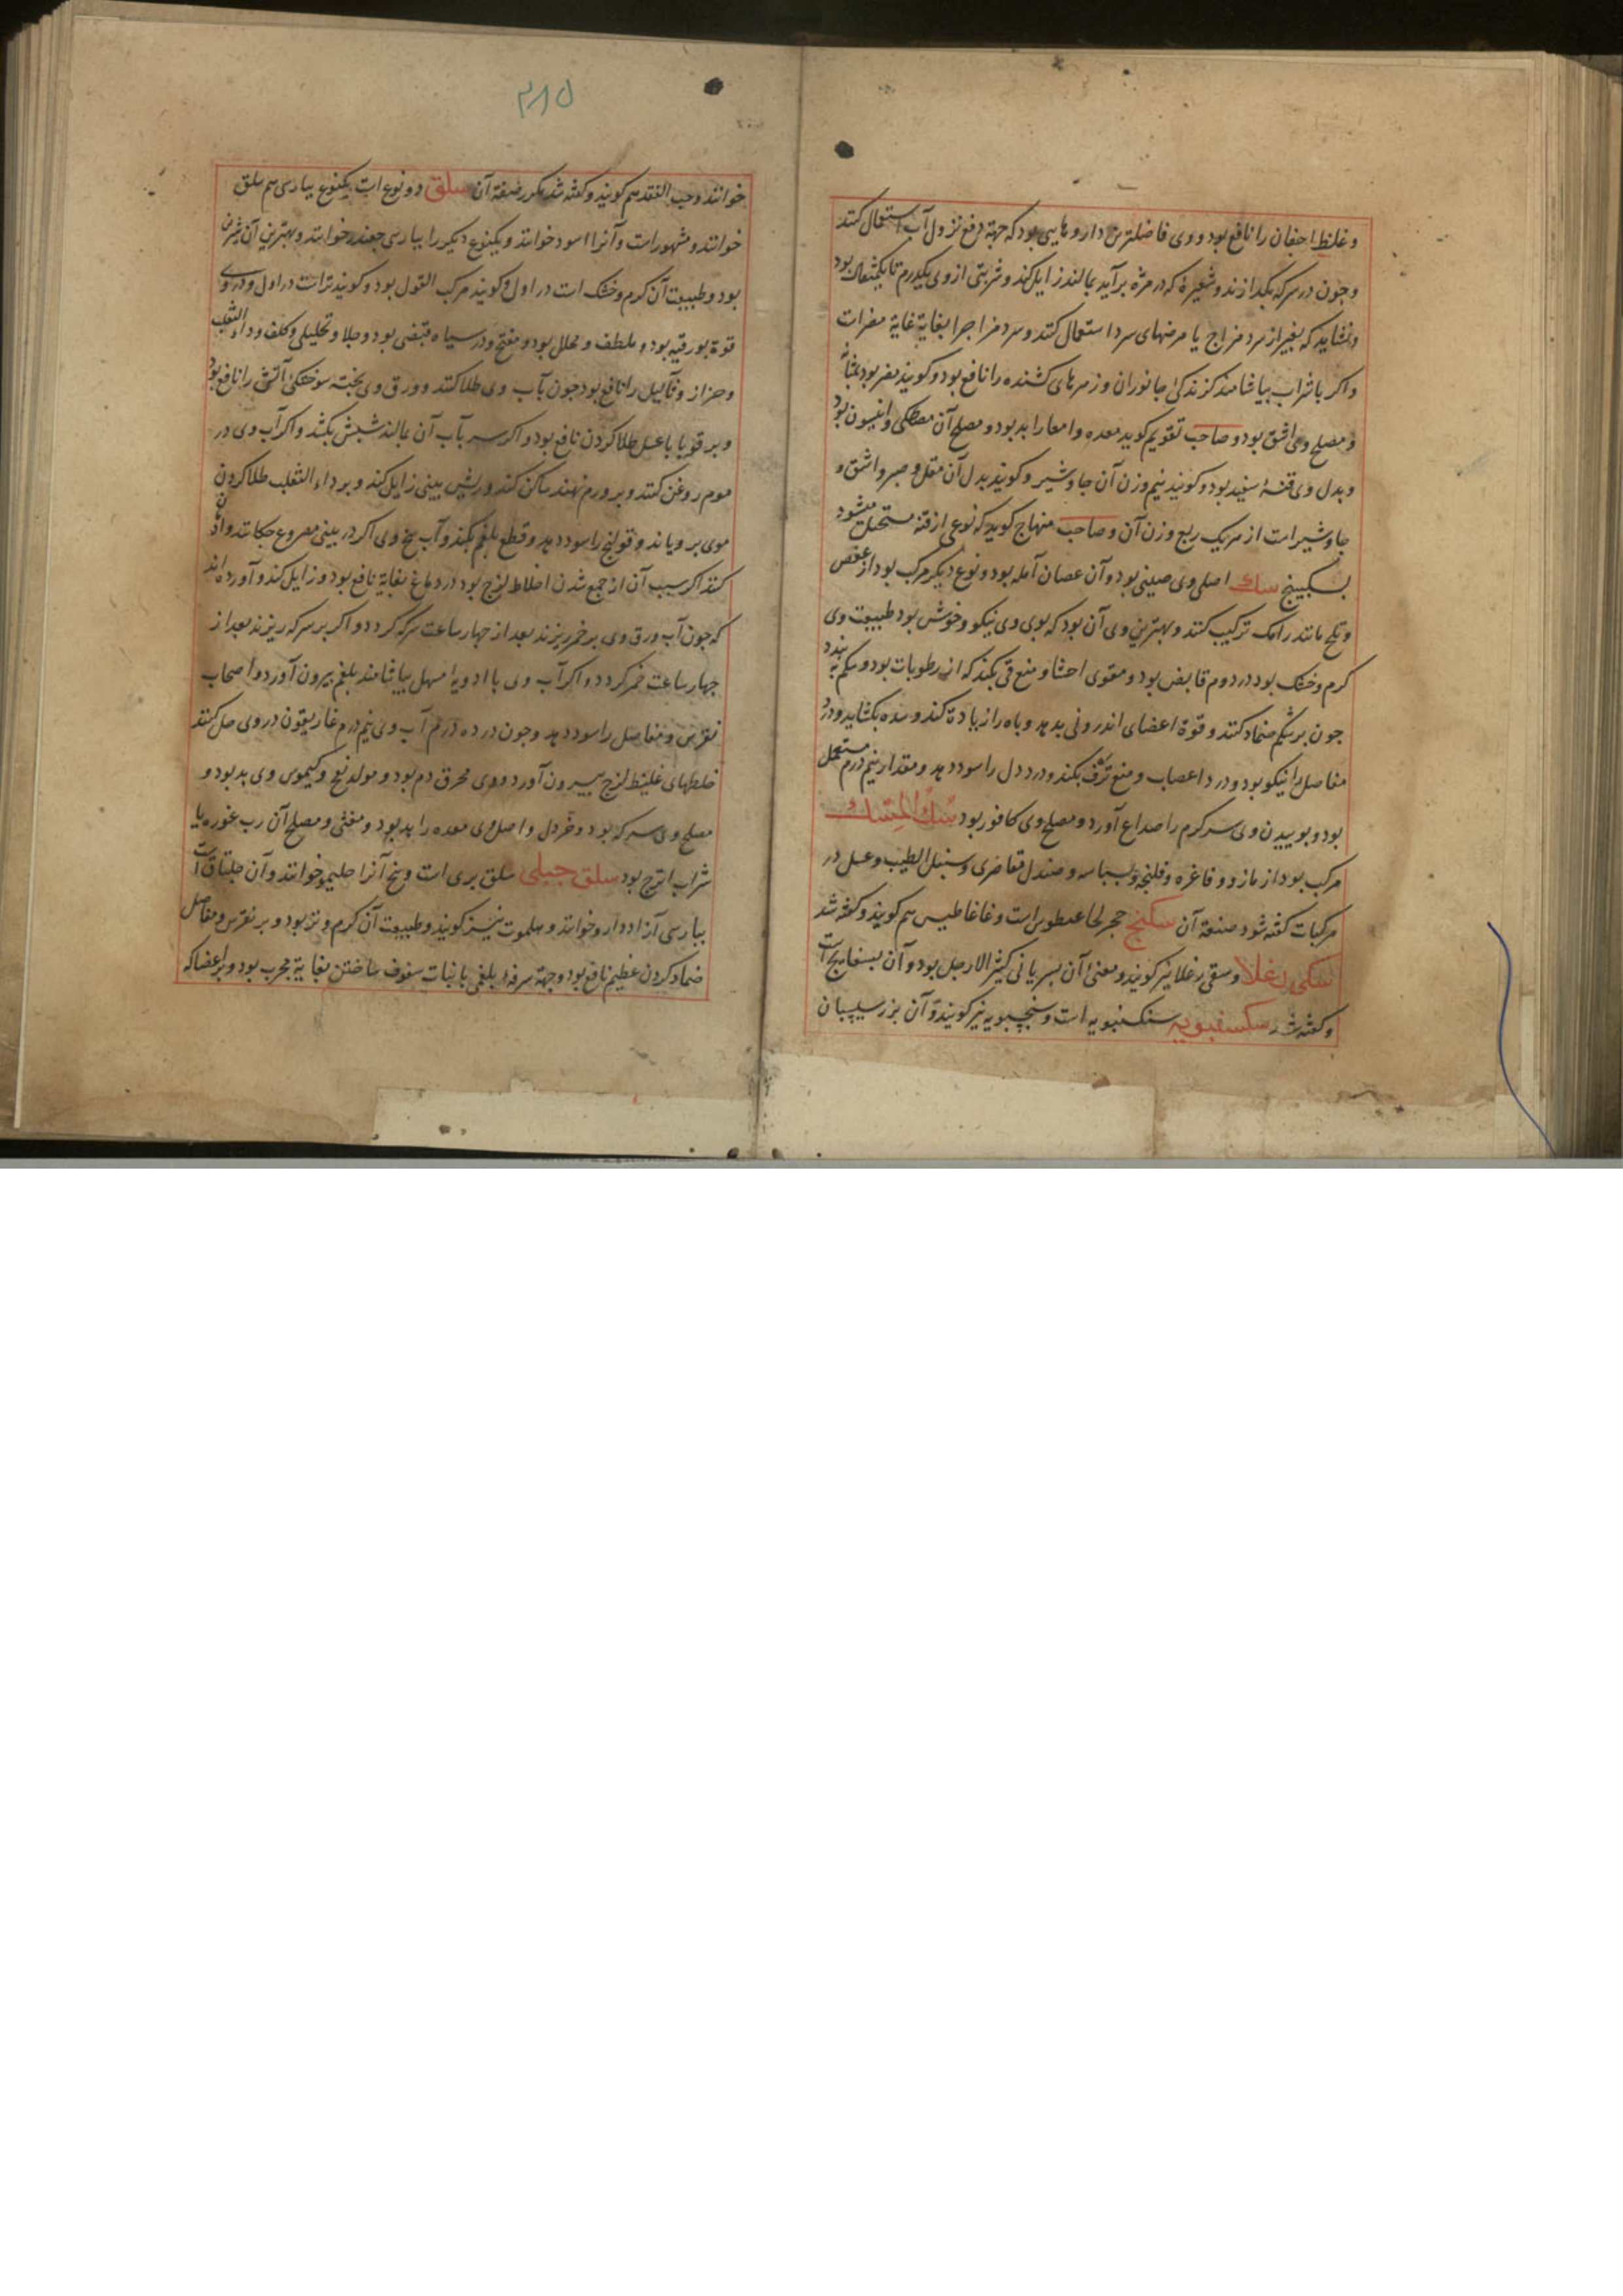 و غلظ اجفان را نافع بود و وی فاضلترین داروهایی بود که جهة دفع نزول آب استعمال کنند
و چون در سرکه بگدازند و شعیرۀ که در مژه برآید بمالند زایل کند و شربتی از وی یکدرم تا یکمثقال بود
و نشاید که بغیر از سرد مزاج یا مرضهای سرد استعمال کنند و سرد مزاج را بغایة غایة مضرات
و اکر با شراب بیاشامند کزندکی جانوران و زهرهای کشنده را نافع بود و کویند مضر بود بمثانه
و مصلح وی اشق بود و صاحب تقویم کوید معده و امعا را بد بود و مصلح آن مصطکی و انیسون بود
و بدل وی قنۀ سفید بود و کویند نیم وزن آن جاوشیر و کویند بدل آن مقل و صبر و اشق و
جاوشیر است از هریک ربع وزن آن و صاحب منهاج کوید که نوعی از قنه مستحیل میشود
بسکبینج سك اصلی وی صینی بود و آن عصارۀ آمله بود و نوع دیکر مرکب بود از عفص
و بلح مانند رامک ترکیب کنند و بهترین وی آن بود که بوی وی نیکو و خوش بود طبیعت وی
کرم و خشک بود در دوم قابض بود و مقوی احشا و منع قی بکند که از رطوبات بود و شکم به بندد
چون بر شکم ضماد کنند و قوة اعضای اندرونی بدهد و باه را زیادة کند و سده بکشاید و درد
مفاصل را نیکو بود و درد اعصاب و منع نزف بکند و درد دل را سود دهد و مقدار نیم درم مستعمل
بود و بوییدن وی سر کرم را صداع آورد و مصلح وی کافور بود سك المسك
مرکب بود از مازو و فاغره و فلنجه و بسباسه و صندل مقاصری و سنبل الطیب و عسل در
مرکبات کفته شود صنعة آن سکبنج حجر است و غاغاطیس هم کویند و کفته شد
سکی رغلا و سقی رغلا نیز کویند و معنی آن بسریانی کثیر الارجل بود و آن بسفایج است
و کفته شد سکسنبویه سنکسنبویه است و سنجسبویه نیز کویند و آن بزر سیسبان
۳۸۵
خوانند و حب الفقد هم کویند و کفته شد مکرر صفة آن سلق دو نوع است یکنوع بپارسی هم سلق
خوانند و مشهور است و آنرا اسود خوانند و یکنوع دیکر را بپارسی چغندر خوانند و بهترین آن شیرین
بود و طبیعت آن کرم و خشک است در اول و کویند مرکب القول بود و کویند تر است در اول و در وی
قوة بورقیه بود و ملطف و محلل بود و مفتح و در سیاه قبضی بود و جلا و تحلیلی و کلف و داء الثعلب
و حزاز و ثآلیل را نافع بود چون بآب وی طلا کنند و ورق وی پخته سوختکی آتش را نافع بود
و بر قوبا با عسل طلا کردن نافع بود و اکر سر بآب آن بمالند شپش بکشد و اکر آب وی در
موم روغن کنند و بر ورم نهند ساکن کند و ریش بینی زایل کند و بر داء الثعلب طلا کردن
موی برویاند و قولنج را سود دهد و قطع بلغم بکند و آب بیخ وی اکر در بینی مصروع چکانند وادۀ
کند اکر سبب آن از جمع شدن اخلاط لزج بود در دماغ بغایة نافع بود و زایل کند و آورده اند
که چون آب ورق وی بر خمر ریزند بعد از چهار ساعت سرکه کردد و اکر بر سرکه ریزند بعد از
چهار ساعت خمر کردد و اکر آب وی با ادویۀ مسهل بیاشامند بلغم بیرون آورد و اصحاب
نقرس و مفاصل را سود دهد و چون در ده درم آب وی نیم درم غاریقون در وی حل کنند
خلطهای غلیظ لزج بیرون آورد و وی محرق دم بود و مولد نفخ و کیموس وی بد بود و
مصلح وی سرکه بود و خردل و اصل وی معده را بد بود و مغثی و مصلح آن رب غوره یا
شراب اترج بود سلق جبلی سلق بری است و بیخ آنرا حلیمو خوانند و آن جلتاق است
بپارسی آنرا اددارو خوانند و سلموت نیز کویند و طبیعت آن کرم و تر بود و بر نقرس و مفاصل
ضماد کردن عظیم نافع بود و جهة سرفۀ بلغمی با نبات سفوف ساختن بغایة مجرب بود و بر اعضا که